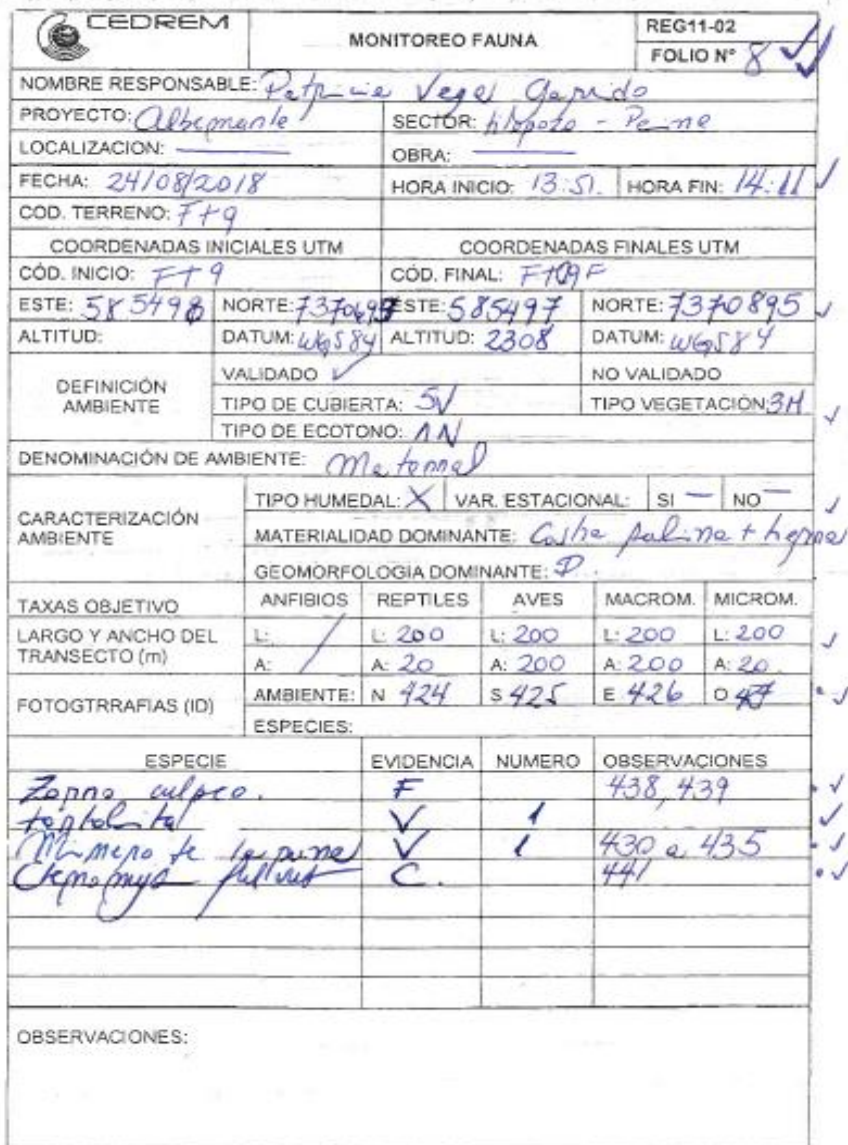 CEDREM
MONITOREO FAUNA
REG11-02
FOLIO Nº 8
NOMBRE RESPONSABLE: Patricia Vega Garrido
PROYECTO: Albemarle SECTOR: tilopozo - Peine
LOCALIZACION: — OBRA: —
FECHA: 24/08/2018 HORA INICIO: 13:51. HORA FIN: 14:11
COD. TERRENO: F+9
COORDENADAS INICIALES UTM COORDENADAS FINALES UTM
CÓD. INICIO: F+9 CÓD. FINAL: F+09F
ESTE: 585498 NORTE: ESTE: 585497 NORTE: 7370895
ALTITUD: DATUM: WGS84 ALTITUD: 2308 DATUM: WGS84
DEFINICIÓN AMBIENTE
VALIDADO ✓ NO VALIDADO
TIPO DE CUBIERTA: 5V TIPO VEGETACIÓN: 3M
TIPO DE ECOTONO: 1N
DENOMINACIÓN DE AMBIENTE: Matorral
CARACTERIZACIÓN AMBIENTE
TIPO HUMEDAL: X VAR. ESTACIONAL: SI — NO —
MATERIALIDAD DOMINANTE: Costra salina +
GEOMORFOLOGIA DOMINANTE:
TAXAS OBJETIVO ANFIBIOS REPTILES AVES MACROM. MICROM.
LARGO Y ANCHO DEL TRANSECTO (m)
L: / L: 200 L: 200 L: 200 L: 200
A: A: 20 A: 200 A: 200 A: 20
FOTOGTRRAFIAS (ID)
AMBIENTE: N 424 S 425 E 426 O
ESPECIES:
ESPECIE EVIDENCIA NUMERO OBSERVACIONES
Zorro culpeo. F 438, 439
tortolita V 1
Minero de la puna V 1 430 a 435
Ctenomys fulvus C. 441
OBSERVACIONES: